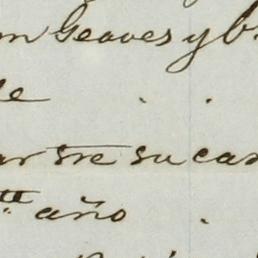 m Geaves y b
le
ar tre su cas
tt año